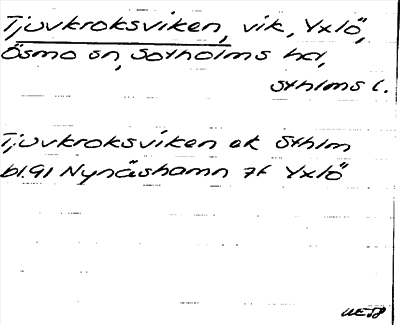 Tjuvkroksviken, vik, Yxlö,
Ösmo sn, Sotholms hd,
sthlms l.
Tjuvkroksviken ek Sthlm
bl. 91 Nynäshamn 7f Yxlö